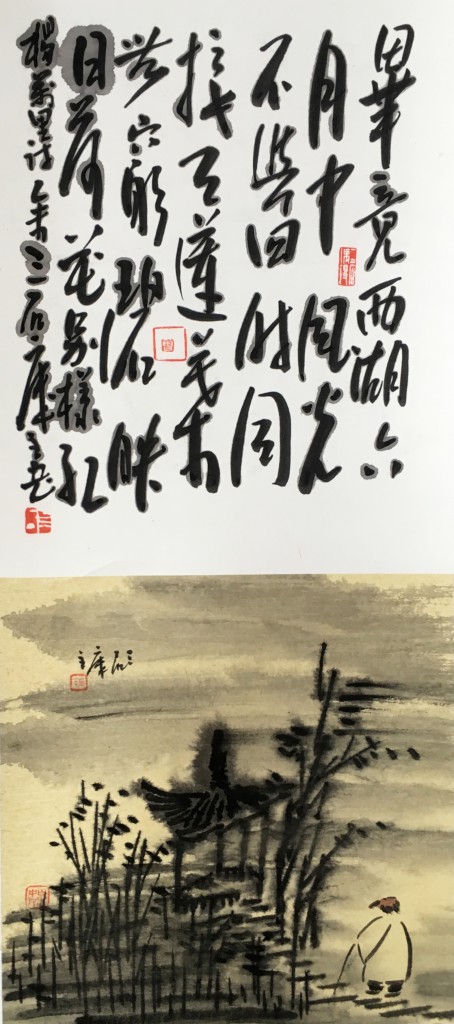 畢竟西湖六
月中風光
不與四時同
接天蓮葉
無窮碧映
日荷花別樣紅
楊萬里詩 三石庫主書
三石庫主